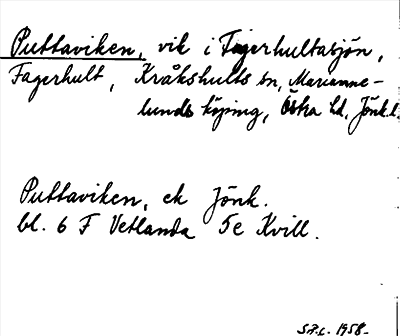 Puttaviken, vik i Fagerhultasjön,
Fagerhult, Kråkshults sn, Marianne-
lunds köping, Östra hd, Jönk.l.
Puttaviken, ek Jönk.
bl. 6 F Vetlanda 5e Kvill.
1958